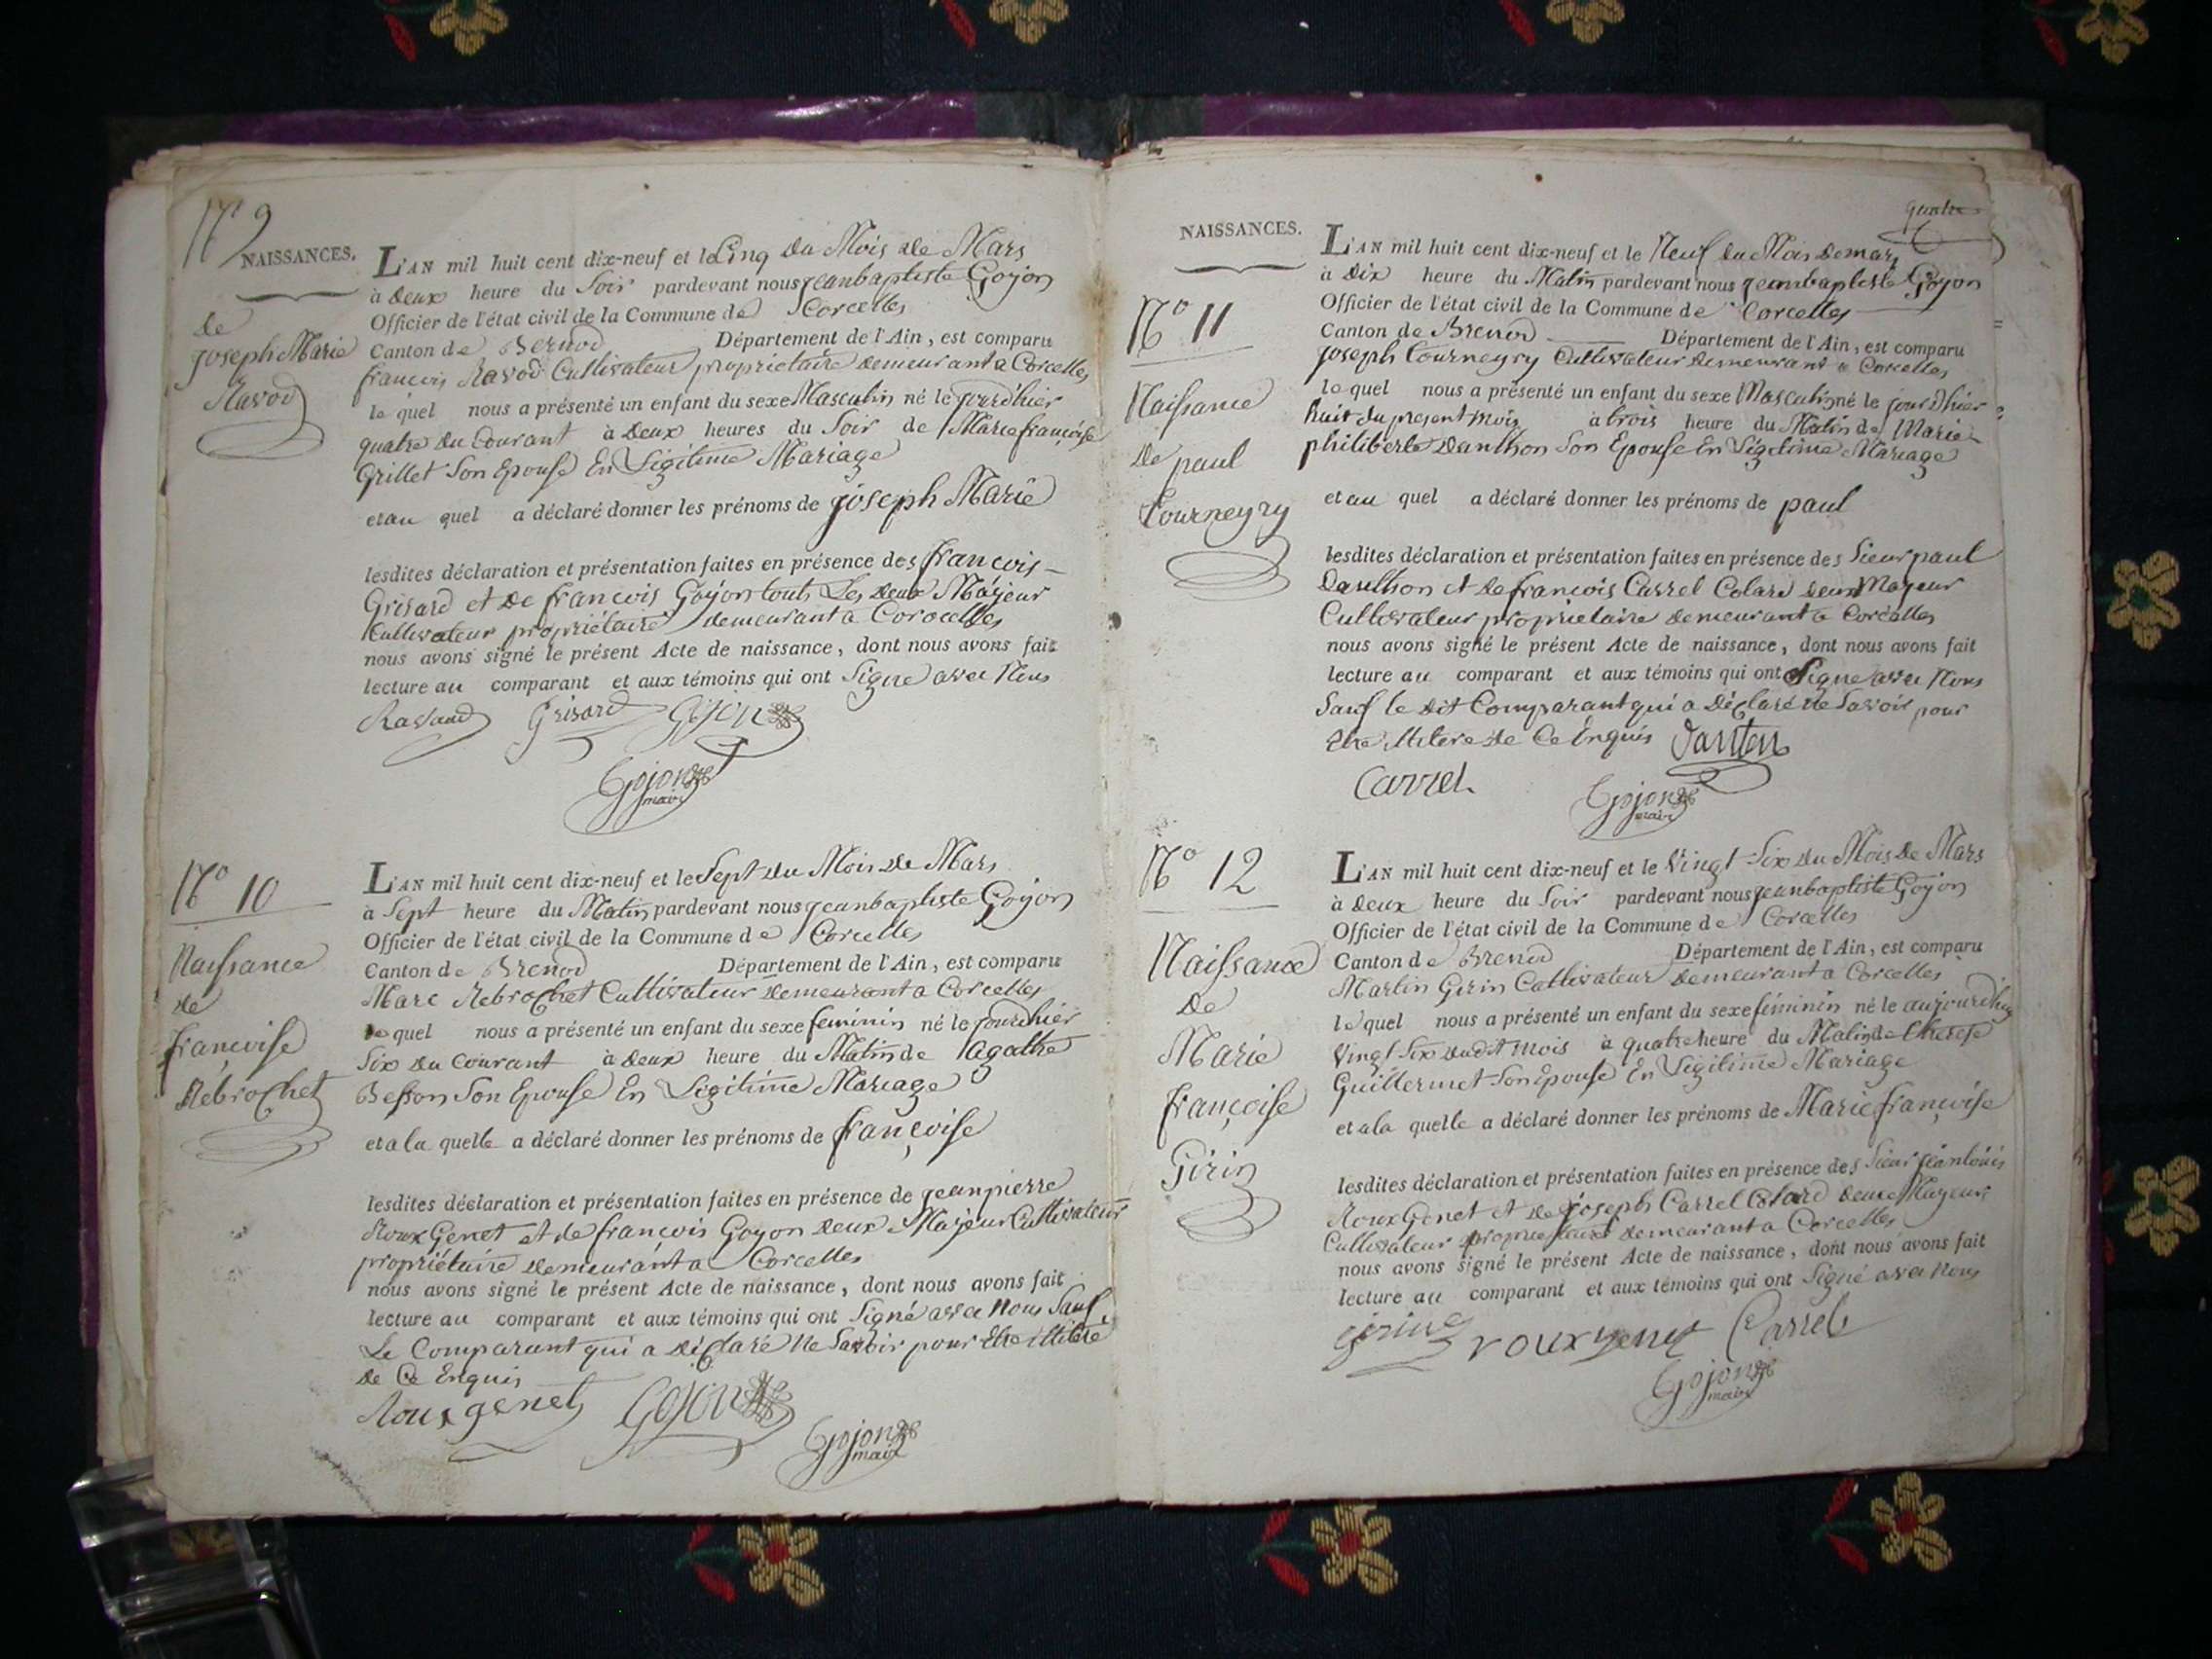 N° 9
NAISSANCES.
de
joseph Marie
Ravod
L'AN mil huit cent dix-neuf et le Cinq du Mois de Mars
à deux heure du Soir pardevant nous jeanbaptiste Gojon
Officier de l'état civil de la Commune de Corcelles
Canton de Brenod Département de l'Ain, est comparu
francois Ravod Cultivateur propriétaire demeurant a Corcelles
le quel nous a présenté un enfant du sexe Masculin né le jourdhier
quatre du Courant à deux heures du Soir de Marie françoise
Grillet Son Epouse En Légitime Mariage
et au quel a déclaré donner les prénoms de joseph Marie
lesdites déclaration et présentation faites en présence des francois
Grisard et de francois Gojon touts Les deux Majeur
Cultivateur propriétaire demeurant a Corocelles
nous avons signé le présent Acte de naissance, dont nous avons fait
lecture au comparant et aux témoins qui ont Signé avec Nous
Ravaud Grisard Gojon
Gojon
maire
N° 10
Naissance
de
françoise
Rebrochet
L'AN mil huit cent dix-neuf et le Sept du Mois de Mars
à Sept heure du Matin pardevant nous jeanbaptiste Gojon
Officier de l'état civil de la Commune de Corcelles
Canton de Brenod Département de l'Ain, est comparu
Marc Rebrochet Cultivateur demeurant a Corcelles
le quel nous a présenté un enfant du sexe feminin né le jourdhier
Six du Courant à deux heure du Matin de Agathe
Besson Son Epouse En Légitime Mariage
et a la quelle a déclaré donner les prénoms de françoise
lesdites déclaration et présentation faites en présence de jeanpierre
Roux Genet et de francois Goyon deux Majeur Cultivateur
propriétaire demeurant a Corcelles
nous avons signé le présent Acte de naissance, dont nous avons fait
lecture au comparant et aux témoins qui ont Signé avec Nous Sauf
Le Comparant qui a déclaré ne Savoir pour Etre illitéré
de Ce Enquis
Roux genet Gojon
Gojon
maire
quatre
NAISSANCES.
N° 11
Naissance
de paul
Tourneyry
L'AN mil huit cent dix-neuf et le Neuf du Mois de mars
à Dix heure du Matin pardevant nous jeanbaptiste Gojon
Officier de l'état civil de la Commune de Corcelles
Canton de Brenod Département de l'Ain, est comparu
joseph Tourneyry Cultivateur demeurant a Corcelles
le quel nous a présenté un enfant du sexe Masculin né le jour d'hier
huit du present mois à trois heure du Matin de Marie
philiberte Danthon Son Epouse En Légitime Mariage
et au quel a déclaré donner les prénoms de paul
lesdites déclaration et présentation faites en présence des Sieur paul
Danthon et de francois Carrel Colard deux Majeur
Cultivateur propriétaire demeurant a Corcelles
nous avons signé le présent Acte de naissance, dont nous avons fait
lecture au comparant et aux témoins qui ont Signé avec Nous
Sauf le dit Comparant qui a déclaré ne Savoir pour
Etre de Ce Enquis Danten
Carrel
Gojon
maire
N° 12
Naissance
De
Marie
françoise
Girin
L'AN mil huit cent dix-neuf et le Vingt Six du Mois de Mars
à deux heure du Soir pardevant nous jeanbaptiste Gojon
Officier de l'état civil de la Commune de Corcelles
Canton de Brenod Département de l'Ain, est comparu
Martin Girin Cultivateur demeurant a Corcelles
le quel nous a présenté un enfant du sexe féminin né le aujourdhuy
Vingt Six dudit mois à quatre heure du Matin de therese
Guillermet Son Epouse En Legitime Mariage
et a la quelle a déclaré donner les prénoms de Marie françoise
lesdites déclaration et présentation faites en présence des Sieur jeanlouis
Roux Genet et de joseph Carrel Colard deux Majeur
Cultivateur propriétaire demeurant a Corcelles
nous avons signé le présent Acte de naissance, dont nous avons fait
lecture au comparant et aux témoins qui ont Signé avec Nous
girin rouxgenet Carrel
Gojon
maire